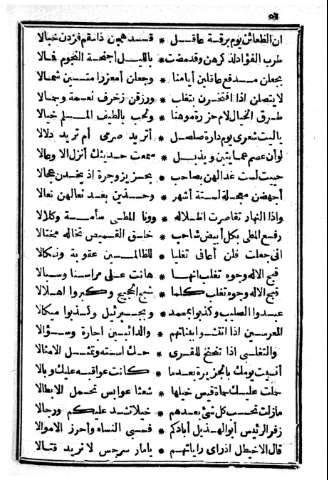 ان الظعائن يوم برقة عاقل * قد هجن ذا سقم فزدن خبالا
طرب الفؤاد لذكرهن وقد مضت * بالليل أجنحة النجوم فمالا
يجعلن مدفع عاقلين أيامنا * وجعلن أمعز رامتين شمالا
لا يتصلن اذا افتخرن بتغلب * ورزقن زخرف نعمة وجمالا
طرق الخيال لام حزرة موهنا * ولحب بالطيف الملم خيالا
يا ليت شعرى يوم دارة صلصل * أتريد صرمى أم تريد دلالا
لو أن عصم عمايتين ويذبل * سمعت حديثك أنزل الاوعالا
حييت لست غدا لهن بصاحب * بحزيز وجرة اذ يخدن عجالا
أجهضن معجلة لستة أشهر * وحذين بعد نعالهن نعالا
واذا النهار تقاصرت اظلاله * وونا المطى سآمة وكلالا
رفع المطى بكل أبيض شاحب * خلق القميص تخاله مختالا
انى جعلت فلن أعافى تغلبا * للظالمين عقوبة ونكالا
قبح الاله وجوه تغلب انها * هانت على مراسنا وسبالا
قبح الاله وجوه تغلب كلما * شبح الحجيج وكبروا اهلالا
عبدوا الصليب وكذبوا بمحمد * وبجبرئيل وكذبوا ميكالا
المعرسين اذا انتشوا ببناتهم * والدائبين اجارة وسؤالا
والتغلبى اذا تنحنح للقرى * حك استه وتمثل الامثالا
أنسيت يومك بالجزيرة بعدما * كانت عواقبه عليك وبالا
حملت عليك حماة قيس خيلها * شعثا عوابس تحمل الابطالا
مازلت تحسب كل شئ بعدهم * خيلا تشد عليكم ورجالا
زفر الرئيس أبو الهذيل أبادكم * فسبى النساء وأحرز الاموالا
قال الاخيطل اذ رأى راياتهم * يا مار سرجس لا نريد قتالا